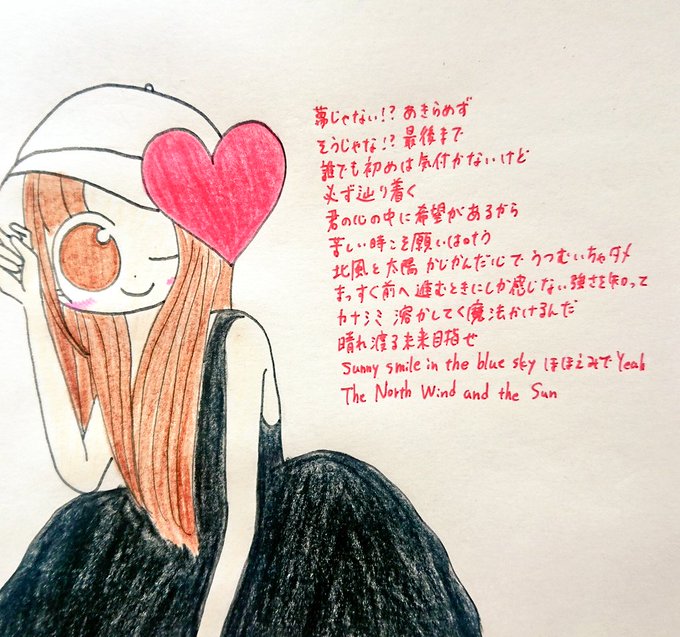 夢じゃない!? あきらめず
そうじゃな!? 最後まで
誰でも初めは気付かないけど
必ず辿り着く
君の心の中に希望があるから
苦しい時こそ願いは叶う
北風と太陽 かじかんだ心で うつむいちゃダメ
まっすぐ前へ進むときにしか感じない強さを知って
カナシミ 溶かしてく魔法かけるんだ
晴れ渡る未来目指せ
Sunny smile in the blue sky ほほえみで Yeah
The North Wind and the Sun